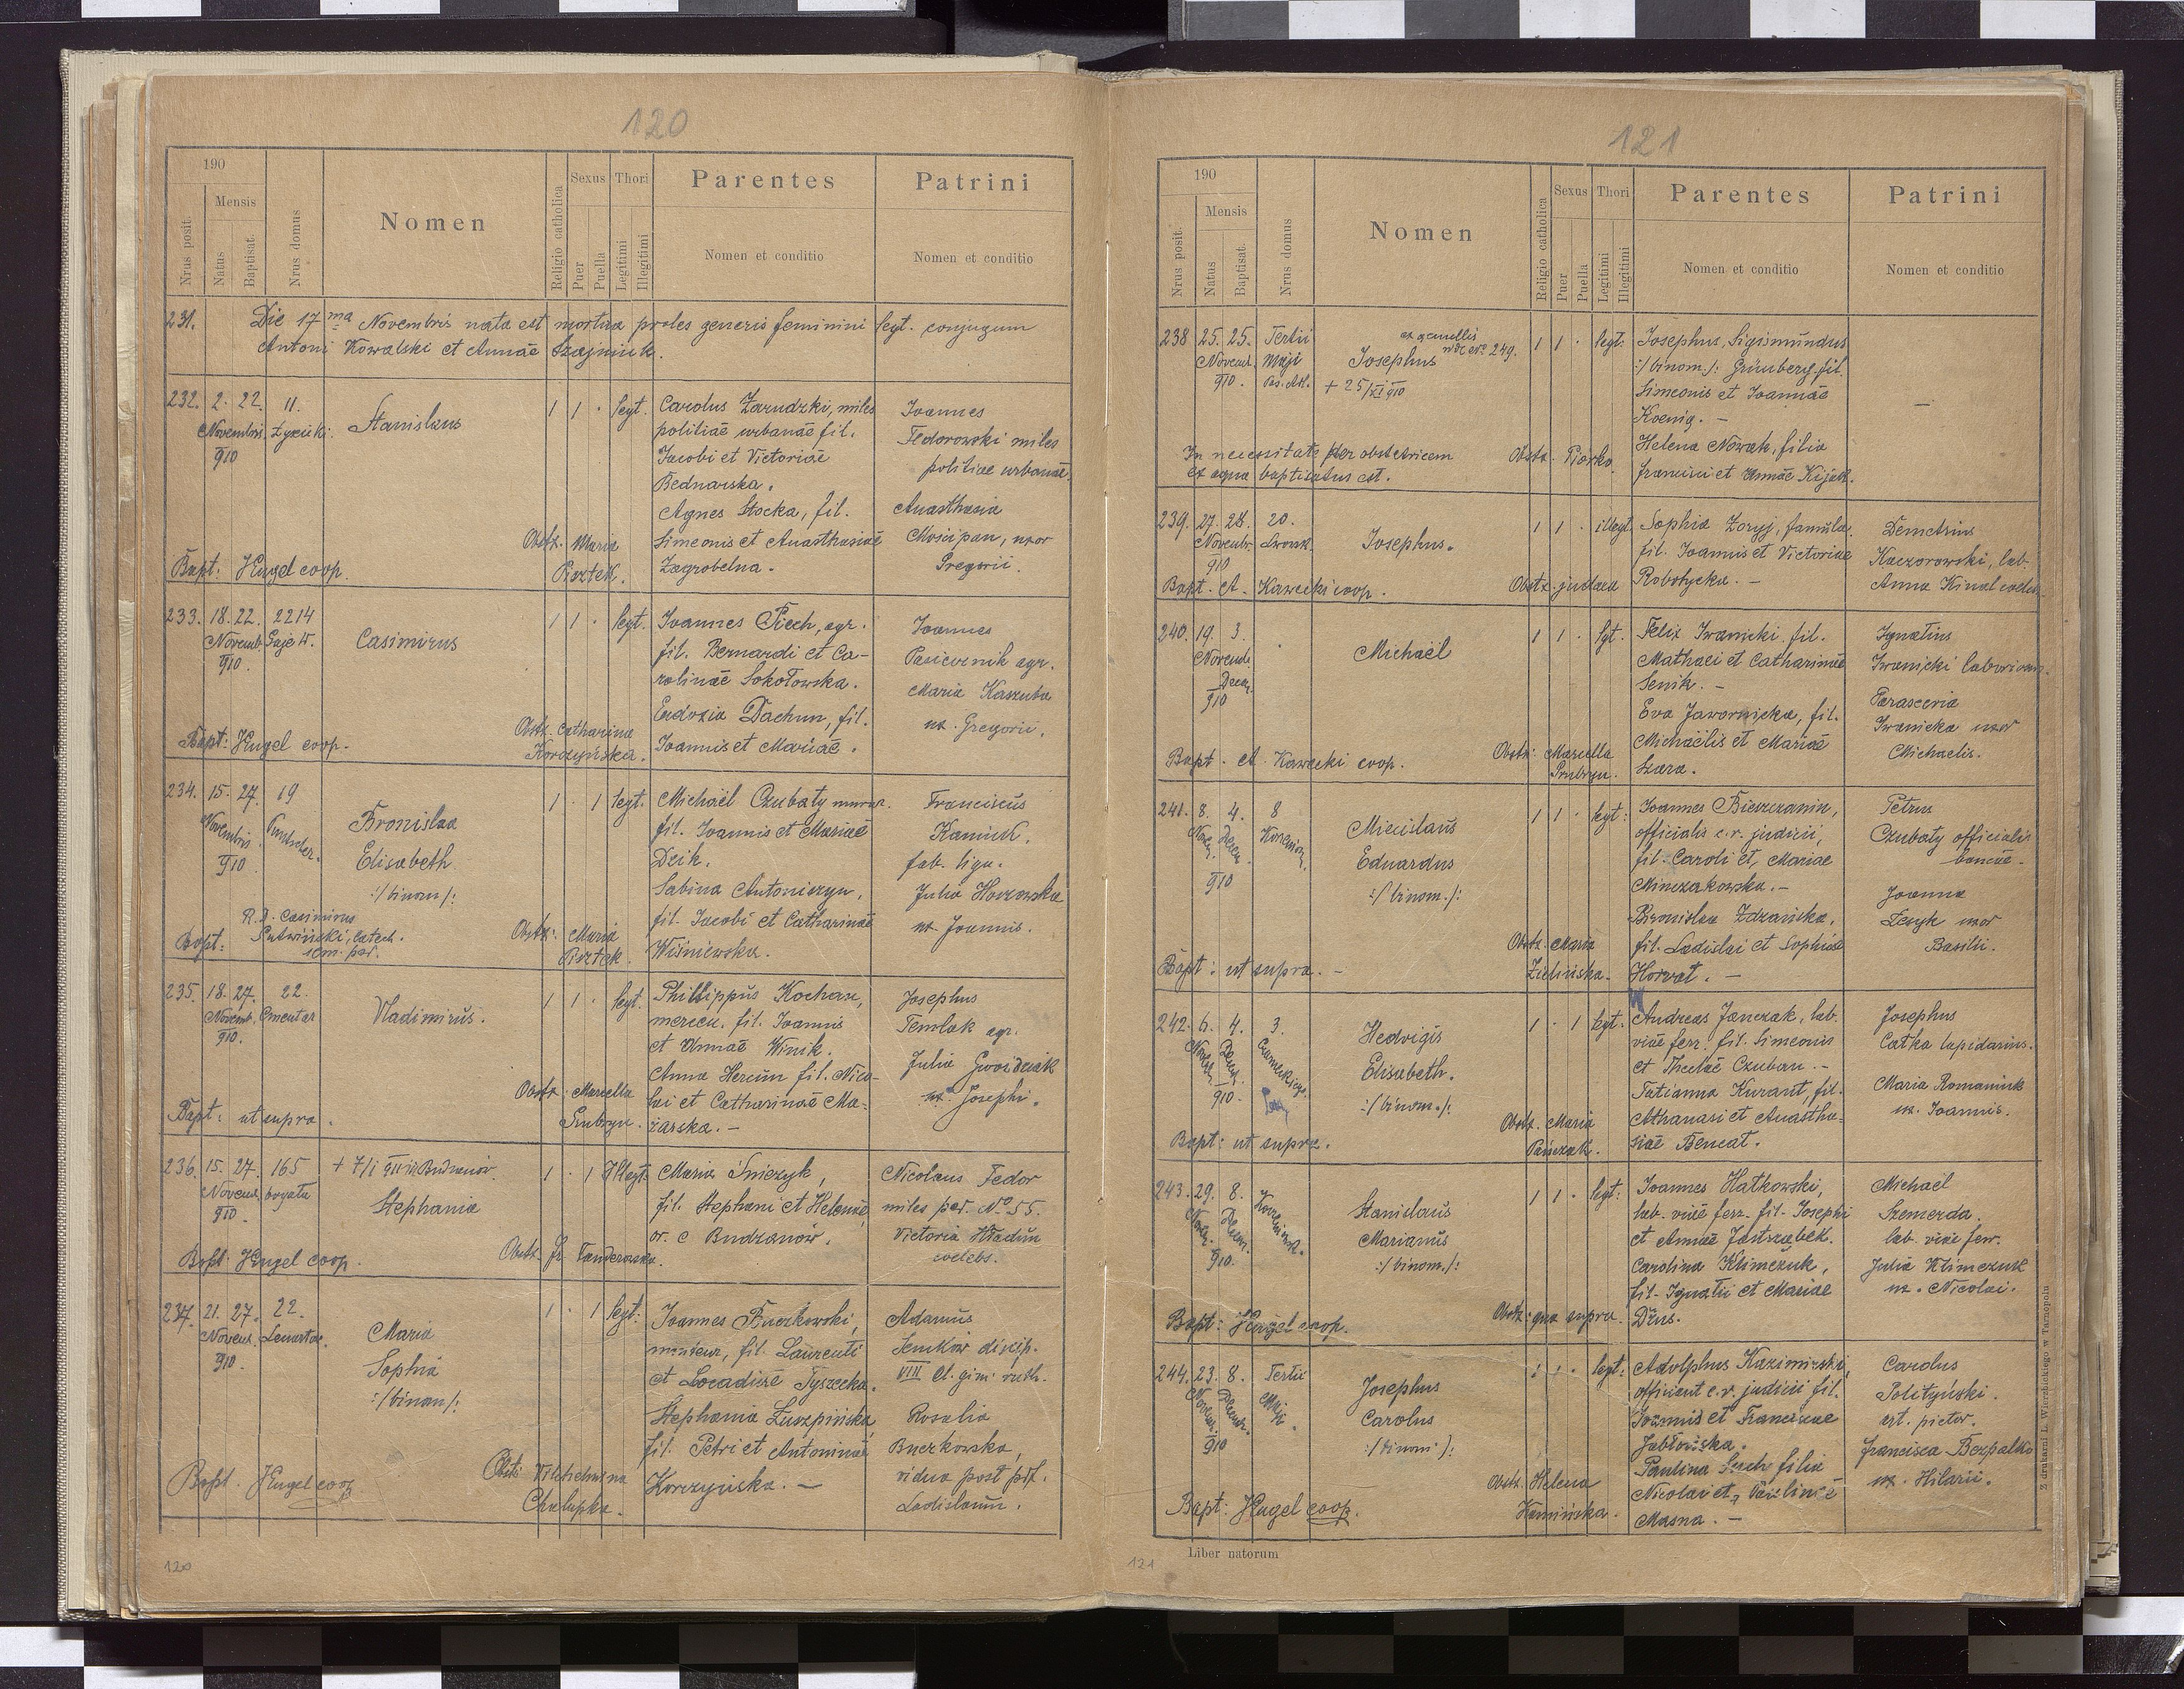 120
190
Nrus posit.
Mensis
Natus
Baptisat.
Nrus domus
Nomen
Religio catholica
Sexus
Puer
Puella
Thori
Legitimi
Illegitimi
Parentes
Nomen et conditio
Patrini
Nomen et conditio
231. Die 17ma Novembris nata est mortua proles generis feminini legt. conjugum
Antoni Kowalski et Annae Szajniuk.
232. 2. 22. 11.
Novembris Zyxicki.
910
Stanislaus
1 1 · legt.
Carolus Zarudzki, miles
politiae urbanae fil.
Jacobi et Victoriae
Bednarska.
Agnes Stocka, fil.
Simeonis et Anasthasiae
Zagrobelna.
Joannes
Fedorowski miles
politiae urbanae.
Anasthasia
Mościpan, uxor
Gregorii.
Obstz. Maria
Pisztek.
Bapt: Hugel coop.
233. 18. 22. 2214
Novemb. Gaje W.
910.
Casimirus
1 1 · legt.
Joannes Piech, agr.
fil. Bernardi et Ca-
rolinae Sokołowska.
Eudoxia Dachun, fil.
Joannis et Mariae.
Joannes
Pasicznik agr.
Maria Kaszuba
ux. Gregorii.
Obstz. Catharina
Korczyńska.
Bapt: Hugel coop.
234. 15. 27. 19
Novembris
910
Bronislaa
Elisabeth
:/binom/:
1 · 1 legt.
Michaël Czubaty murar.
fil. Joannis et Mariae
Deik.
Sabina Antoniszyn,
fil. Jacobi et Catharinae
Wiśniewska.
Franciscus
Kaniuk.
fab. lign.
Julia Horzowska
ux. Joannis.
Obstz: Maria
Pisztek.
R. D. Casimirus
Bapt: Sutwiński, catech.
sem. pad.
235. 18. 27. 22.
Novemb. Cmentar
910.
Vladimirus.
1 1 · legt.
Phillippus Kochan,
mercen. fil. Joannis
et Annae Winik.
Anna Hercun fil. Nico-
lai et Catharinae Ma-
zarska. -
Josephus
Temlak agr.
Julia Gwoidciak
ux. Josephi.
Obstz. Marcella
Prubryn.
Bapt: ut supra.
236. 15. 27. 165
Novem. bogata
910.
+ 7/I 911 in Budzanów
Stephania
1 · 1 Illegt.
Maria Śnieżyk,
fil. Stephani et Helenae,
or. e Budzanów.
Nicolaus Fedor
miles ped. No 55.
Victoria Władun
coelebs.
Bapt: Hugel coop.
237. 21. 27. 22.
Novem. Lenartow.
910.
Maria
Sophia
:/binom/:
1 · 1 legt:
Joannes Buczkowski,
fil. Laurenti
et Leocadiae Tyszecka.
Stephania Łuszpińska
fil. Petri et Antoninae
Korczyńska. -
Adamus
Semków discip.
VIII cl. gim. ruth.
Rosalia
Buczkowska,
vidua post pif.
Ladislaum.
Obstz Vilhelmina
Chalupka.
Bapt. Hugel coop
120
121
190
Nrus posit.
Mensis
Natus
Baptisat.
Nrus domus
Nomen
Religio catholica
Sexus
Puer
Puella
Thori
Legitimi
Illegitimi
Parentes
Nomen et conditio
Patrini
Nomen et conditio
238 25. 25. Tertii
Novem. Maji
910.
ex gemellis
vide No 249.
Josephus
+ 25/XI 910
1 1 · legt.
Josephus, Sigismundus
:/binom/: Grünberg, fil.
Simeonis et Joannae
Koenig. -
Helena Nowak, filia
Francisci et Annae Kijak.
—
In necessitate per obstetricem
ex aqua baptisatus est.
Obstz. Piorko.
239. 27. 28. 20.
Novembr. Lwowsk.
910
Josephus.
1 1 · illegt.
Sophia Zoryj, famula
fil. Joannis et Victoriae
Robotycka. -
Demetrius
Kaczorowski, lab.
Anna Kinal coeleb.
Bapt. A. Kawecki coop.
Obstz. judaea
240. 19. 3.
Novemb.
Decem.
910
Michaël
1 1 · lgt.
Felix Iwanicki fil.
Mathaei et Catharinae
Senik. -
Eva Jawornicka, fil.
Michaëlis et Mariae
Szara.
Ignatius
Iwanicki laborians.
Parascevia
Iwanicka uxor
Michaelis.
Bapt. A. Kawecki coop.
Obstz: Marcella
Prubryn.
241. 8. 4. 8
Novem. Decem.
910
Miecislaus
Eduardus
:/binom./:
1 1 · legt:
Joannes Bieszczanin,
officialis c. r. judicii,
fil. Caroli et Mariae
Minczakowska. -
Bronislaa Zdzańska,
fil. Ladislai et Sophiae
Horvat. -
Petrus
Czubaty officialis
bancae.
Joanna
Leszyk uxor
Basilii.
Obstz. Maria
Zielińska.
Bapt: ut supra. -
242. 6. 4. 3.
Novem. Decem.
910.
Hedvigis
Elisabeth.
:/binom./:
1 · 1 legt.
Andreas Janczak, lab.
viae ferr. fil. Simeonis
et Theclae Czuban. -
Tatianna Kurant, fil.
Athanasi et Anastha-
siae Beneat.
Josephus
Catka lapidarius.
Maria Romaniuk
ux. Joannis.
Obstz. Maria
Pańczak.
Bapt: ut supra.
243. 29. 8.
Novem. Decem.
910.
Stanislaus
Marianus
:/binom./:
1 1 · legt:
Joannes Hatkowski,
lab. viae ferr. fil. Josephi
et Annae Jastrzabek.
Carolina Klimczuk,
fil. Ignatii et Mariae
Dżus.
Michaël
Szemerda.
lab. viae ferr.
Julia Klimczuk
ux. Nicolai.
Obstz: qua supra.
Bapt: Hugel coop.
244. 23. 8. Tertii
Novem. Decembr. Maji
910
Josephus
Carolus
:/binom/:
1 1 · legt:
Adolphus Kazimirski,
officiant c. r. judicii fil.
Joannis et Franciscae
Jabłońska.
Paulina filia
Nicolai et Paulinae
Masna. -
Carolus
Polityński.
art. pictor.
Francisca Bezpalko
ux. Hilarii.
Obstz. Helena
Kamińska.
Bapt: Hugel coop.
Liber natorum
121
Z drukarni L. Wierzbickiego w Tarnopolu